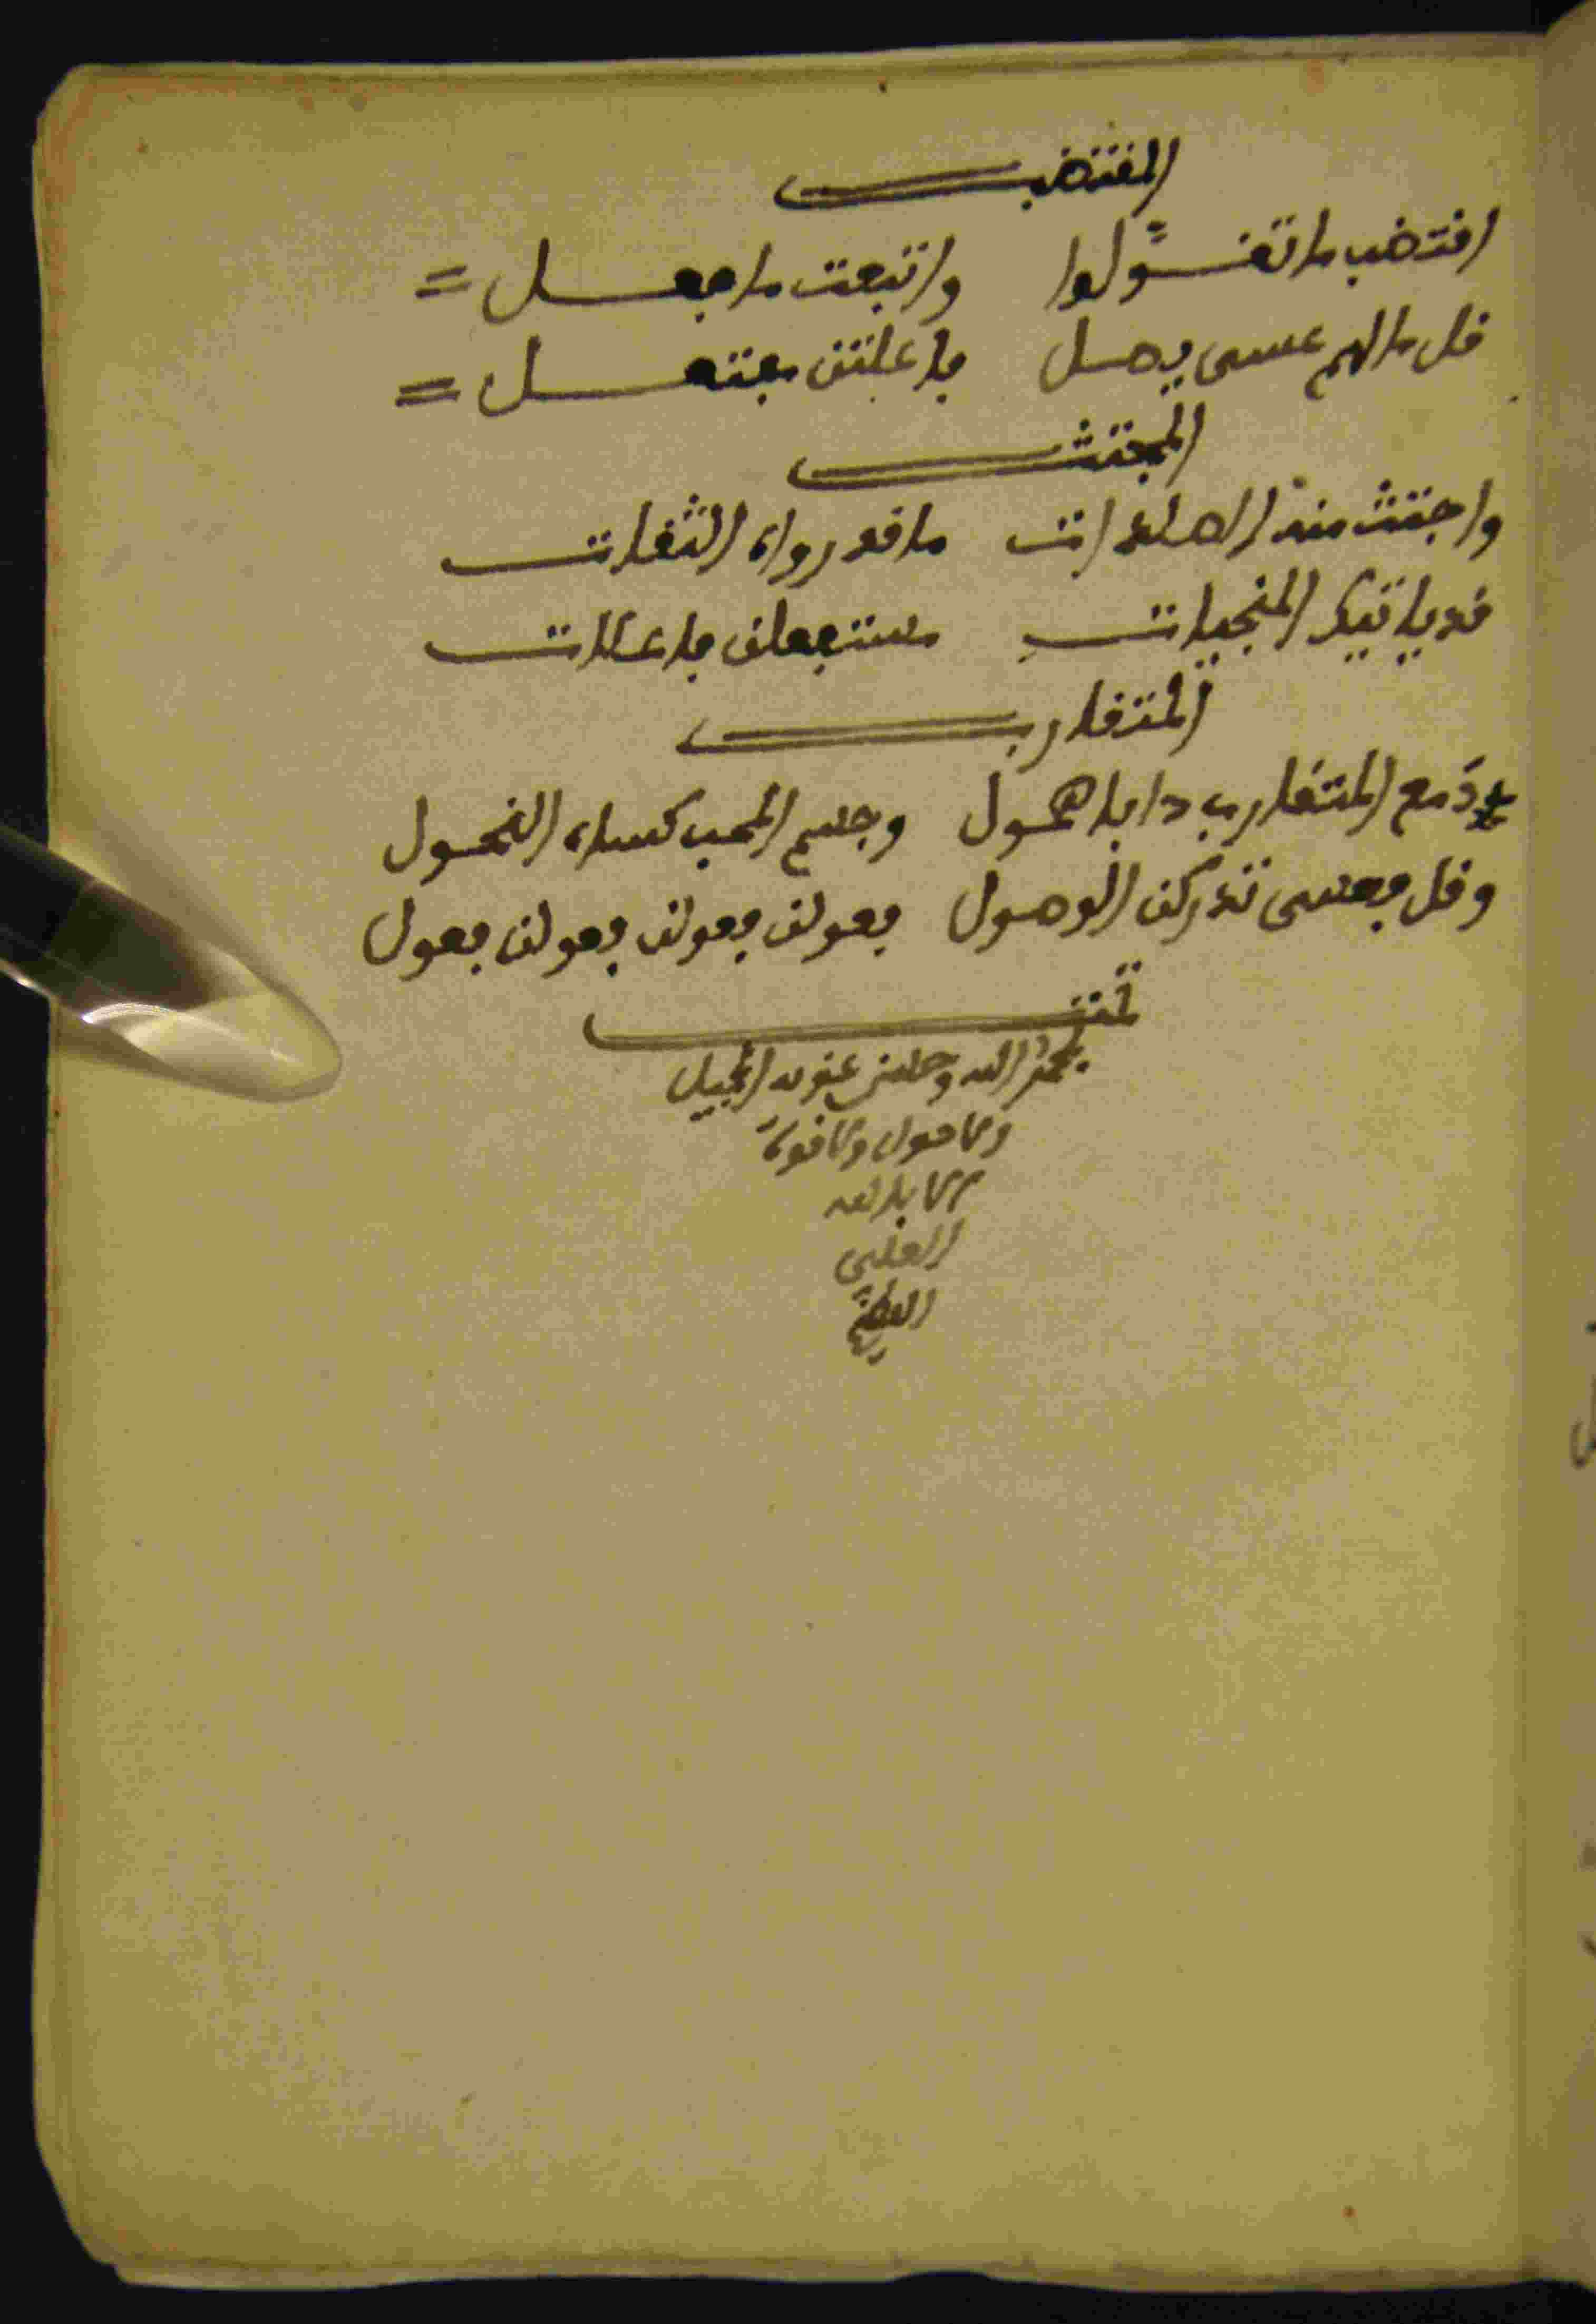 المقتضب
اقتضب ما تقولوا واتبعت ما جعل =
قل ما لهم عسى يصل فاعلتن مفتعل =
المجتث
واجتث منه ما قد رواه الثقات
قد ياتيك المنجيات مستفعلن فاعلات
المتقارب
دمع المتقارب دابا همول وجسم المحب كساه النحول
وقل فعسى تدركن الوصول فعولن فعولن فعولن فعول
تمت
بحمد الله وحسن عونه الجميل
ولا حول ولا قوة
الا بالله
العلي
العظيم